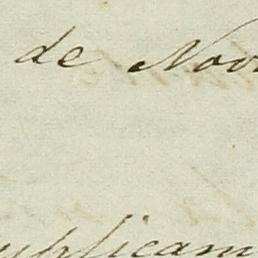 de Nov
ublicam